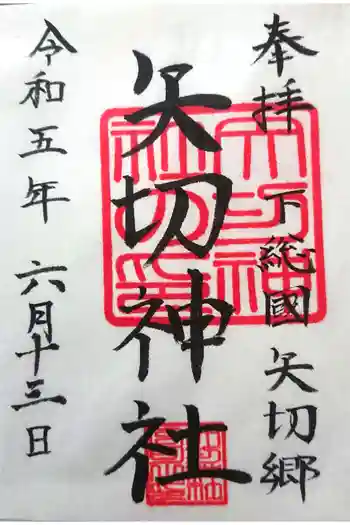 奉拝 下総國矢切郷
矢切神社
令和五年 六月十三日